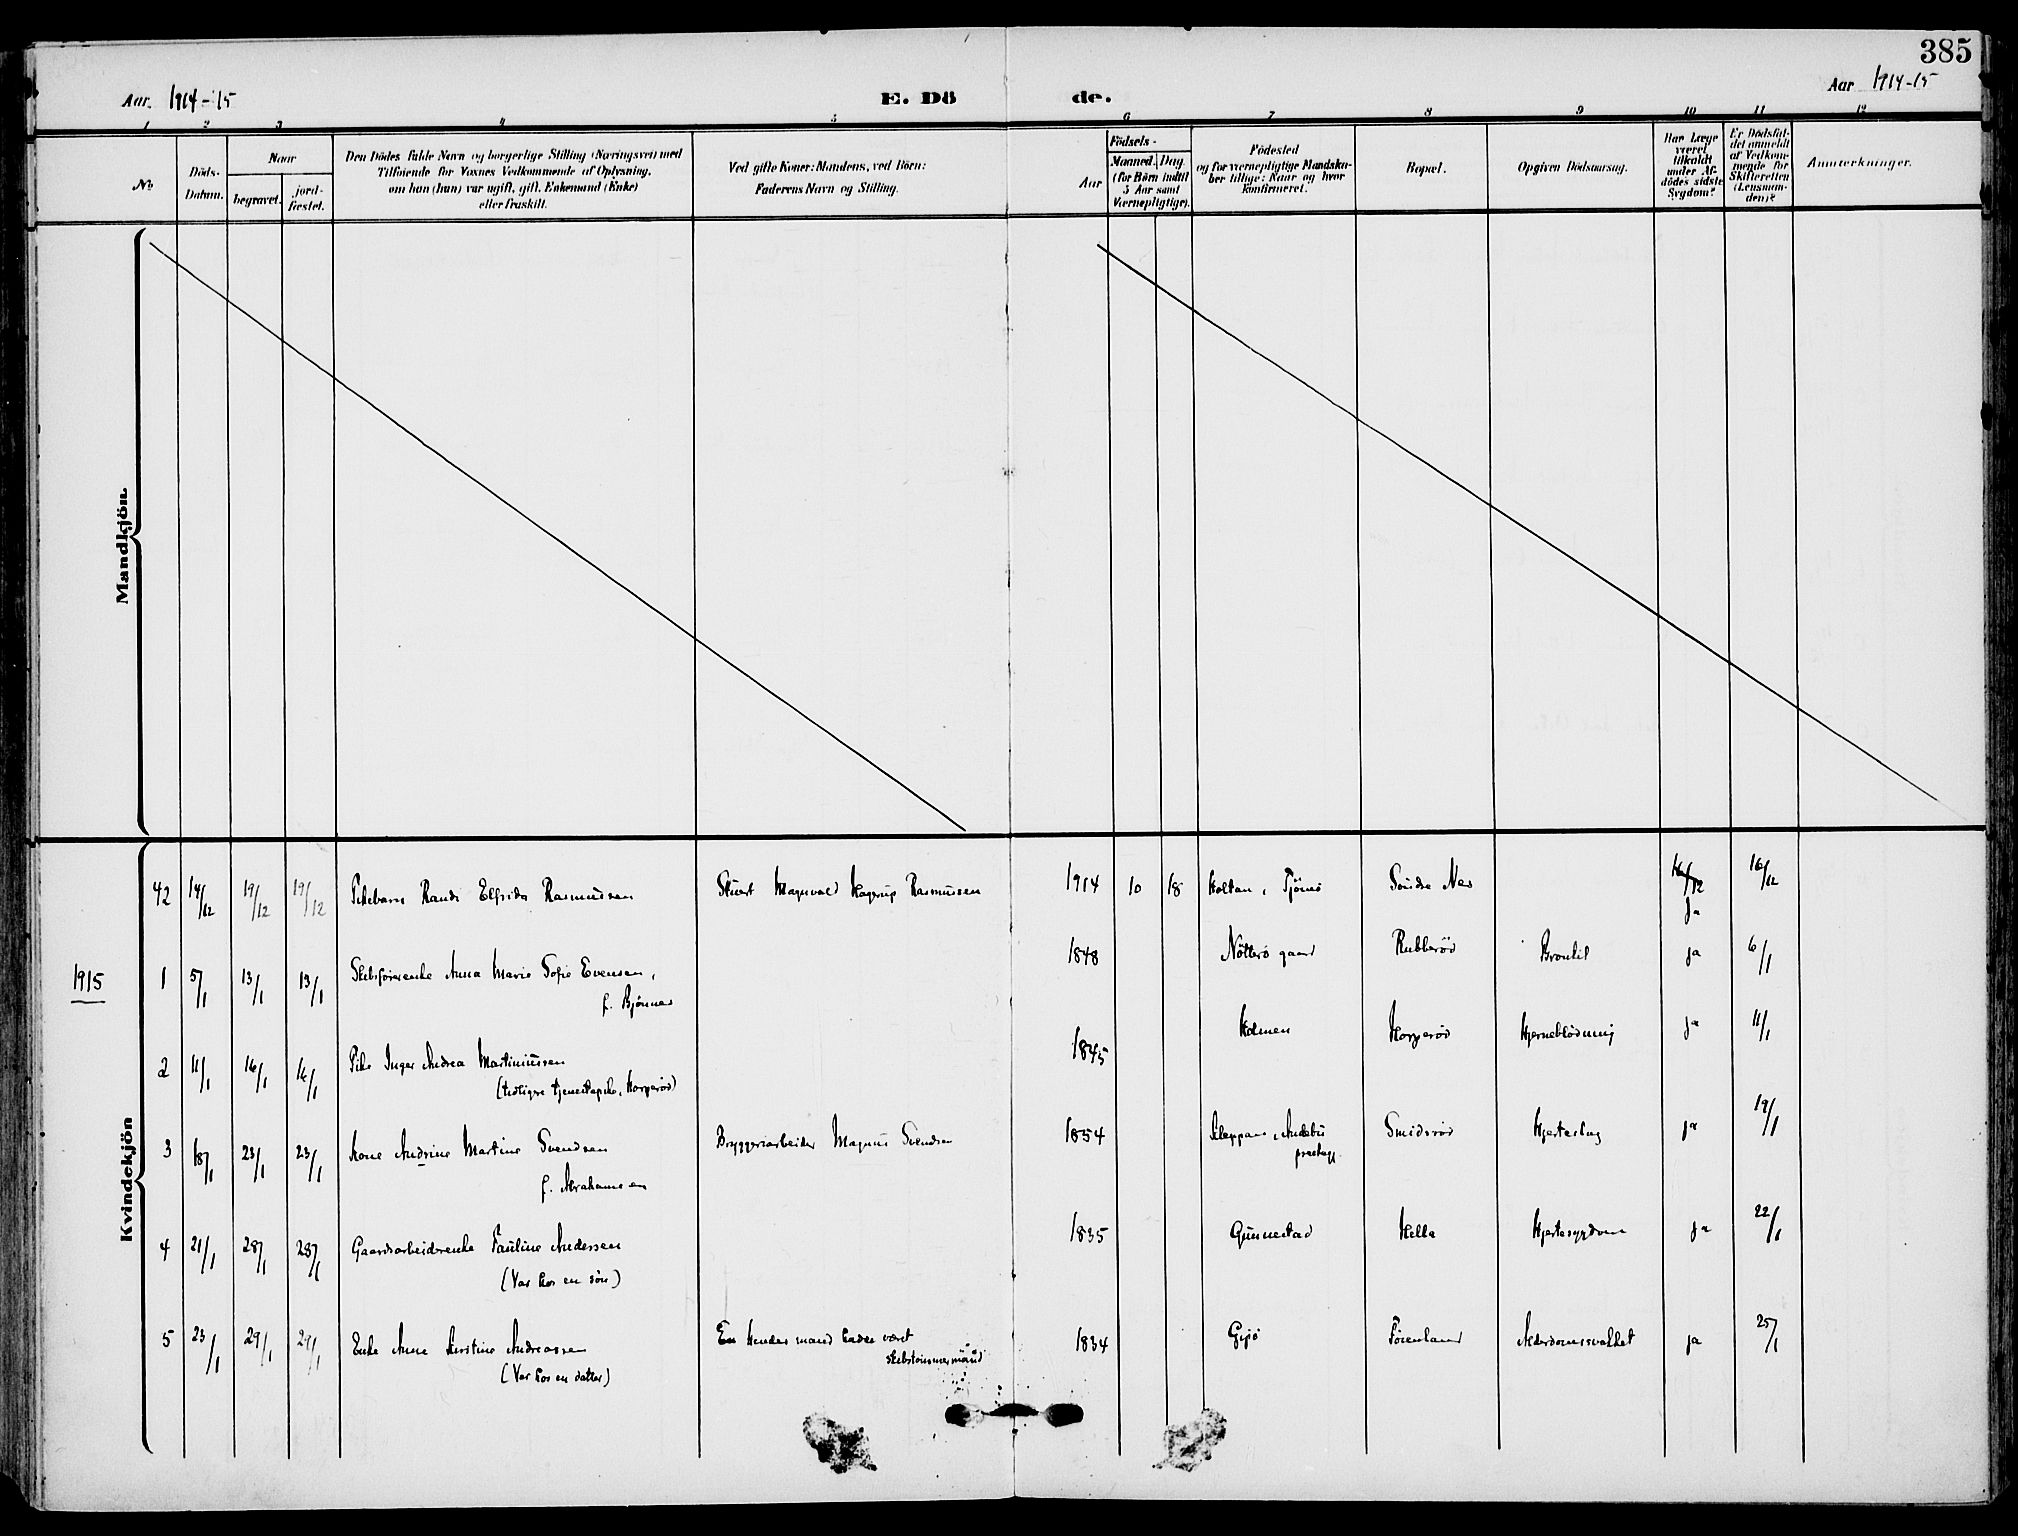 385
Aar 1914-15
E. Döde.
Aar 1914-15
1 2 3 4 5 6 7 8 9 10 11 12
No
Döds-
Datum.
Naar
begravet.
jord-
fæstet.
Den Dödes fulde Navn og borgerlige Stilling (Næringsvei) med
Tilföiende for Voxnes Vedkommende af Oplysning,
om han (hun) var ugift, gift, Enkemand (Enke)
eller fraskilt.
Ved gifte Koner: Mandens, ved Börn:
Faderens Navn og Stilling.
Födsels-
Aar
Maaned. Dag.
(for Börn indtil
5 Aar samt
Værnepligtige).
Födested
og for værnepligtige Mandska-
ber tillige: Naar og hvor
konfirmeret.
Bopæl.
Opgiven Dödsaarsag.
Har Læge
været
tilkaldt
under Af-
dödes sidste
Sygdom?
Er Dödsfal-
det anmeldt
af Vedkom-
mende for
Skifteretten
(Lensman-
den)?
Anmærkninger.
Mandkjön.
Kvindekjön
42 14/12 19/12 19/12 Pikebarn Randi Elfrida Rasmussen Stuert Magnvald Kagrup Rasmussen 1914 10 18 Holtan, Tjömö Söndre Nes 16/12 16/12
ja
1915
1 5/1 13/1 13/1 Skibsförerenke Anna Marie Sofie Evensen, 1848 Nötterö gaard Rubberöd Bronkit ja 6/1
f. Bjönnes
2 11/1 16/1 16/1 Pike Inger Andrea Martiniussen 1845 Holmen Korperöd Hjerneblödning ja 11/1
(tidligere tjenestepike, Korperöd)
3 18/1 23/1 23/1 Kone Andrine Martine Svendsen Bryggeriarbeider Magnus Svendsen 1854 Andebu Smidsröd Hjerteslag ja 19/1
præstegj.
f. Abrahamsen
4 21/1 28/1 28/1 Gaardsarbeiderenke Pauline Andersen 1835 Gunnestad Hella Hjertesygdom ja 22/1
(Var hos en sön)
5 23/1 29/1 29/1 Enke Anne Kirstine Andreassen En hendes mand hadde været 1834 Gipö Föienland Alderdomssvakhet ja 25/1
skibstömmermand
(Var hos en datter)